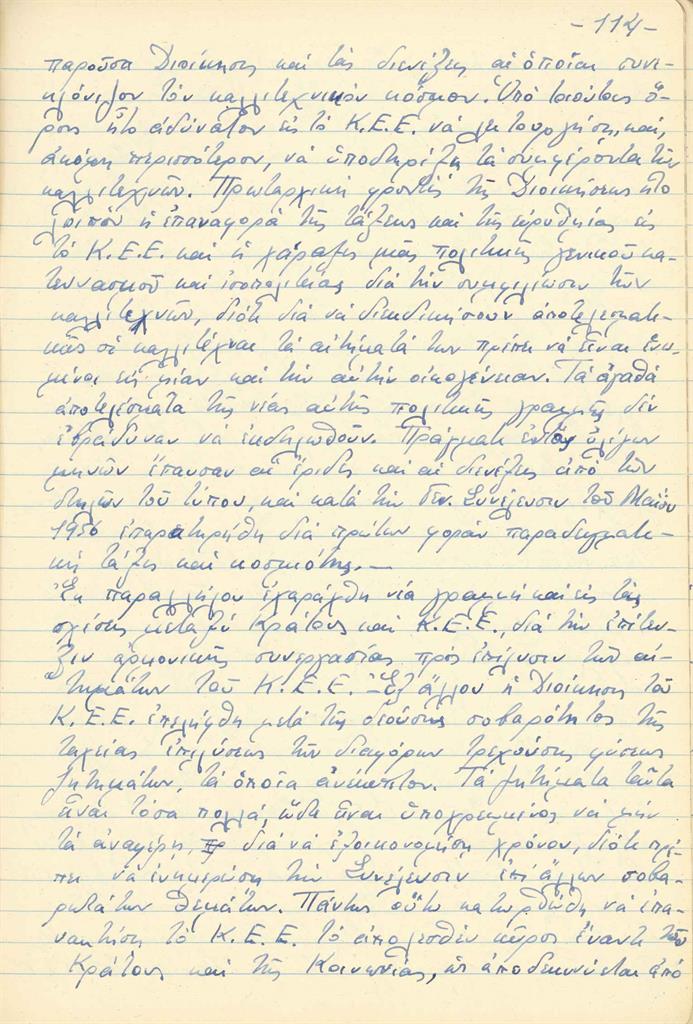 -114-
παροῦσα Διοίκησις καὶ τὰς διενέξεις αἱ ὁποῖαι συνε-
κλόνιζον τὸν καλλιτεχνικὸν κόσμον. Ὑπὸ τοιούτους ὅ-
ρους ἦτο ἀδύνατον εἰς τὸ Κ.Ε.Ε. νὰ λειτουργήσῃ, καί,
ἀκόμη περισσότερον, νὰ ὑποστηρίξῃ τὰ συμφέροντα τῶν
καλλιτεχνῶν. Πρωταρχικὴ φροντὶς τῆς Διοικήσεως ἦτο
λοιπὸν ἡ ἐπαναφορὰ τῆς τάξεως καὶ τῆς εὐρυθμίας εἰς
τὸ Κ.Ε.Ε. καὶ ἡ χάραξις μιᾶς πολιτικῆς γενικοῦ κα-
τευνασμοῦ καὶ ἰσοπολιτείας διὰ τὴν συμφιλίωσιν τῶν
καλλιτεχνῶν, διότι διὰ νὰ διεκδικήσουν ἀποτελεσματι-
κῶς οἱ καλλιτέχναι τὰ αἰτήματά των πρέπει νὰ εἶναι ἑνω-
μένοι εἰς μίαν καὶ τὴν αὐτὴν οἰκογένειαν. Τὰ ἀγαθὰ
ἀποτελέσματα τῆς νέας αὐτῆς πολιτικῆς γραμμῆς δὲν
ἐβράδυναν νὰ ἐκδηλωθοῦν. Πράγματι ἐντὸς ὀλίγων
μηνῶν ἔπαυσαν αἱ ἔριδες καὶ αἱ διενέξεις ἀπὸ τῶν
στηλῶν τοῦ τύπου, καὶ κατὰ τὴν Γεν. Συνέλευσιν τοῦ Μαΐου
1956 ἐπαρατηρήθη διὰ πρώτην φορὰν παραδειγματι-
κὴ τάξις καὶ κοσμιότης.—
Ἐκ παραλλήλου ἐχαράχθη νέα γραμμὴ καὶ εἰς τὰς
σχέσεις μεταξὺ Κράτους καὶ Κ.Ε.Ε., διὰ τὴν ἐπίτευ-
ξιν ἁρμονικῆς συνεργασίας πρὸς ἐπίλυσιν τῶν αἰ-
τημάτων τοῦ Κ.Ε.Ε. — Ἐξ ἄλλου ἡ Διοίκησις τοῦ
Κ.Ε.Ε. ἐπελήφθη μετὰ τῆς δεούσης σοβαρότητος τῆς
ταχείας ἐπιλύσεως τῶν διαφόρων τρεχούσης φύσεως
ζητημάτων, τὰ ὁποῖα ἀνέκυπτον. Τὰ ζητήματα ταῦτα
εἶναι τόσα πολλά, ὥστε εἶναι ὑποχρεωμένος νὰ μὴν
τὰ ἀναφέρῃ, διὰ νὰ ἐξοικονομήσῃ χρόνον, διότι πρέ-
πει νὰ ἐνημερώσῃ τὴν Συνέλευσιν ἐπὶ ἄλλων σοβα-
ρωτάτων θεμάτων. Πάντως οὕτω κατωρθώθη νὰ ἐπα-
νακτήσῃ τὸ Κ.Ε.Ε. τὸ ἀπολεσθὲν κῦρος ἔναντι τοῦ
Κράτους καὶ τῆς Κοινωνίας, ὡς ἀποδεικνύεται ἀπὸ